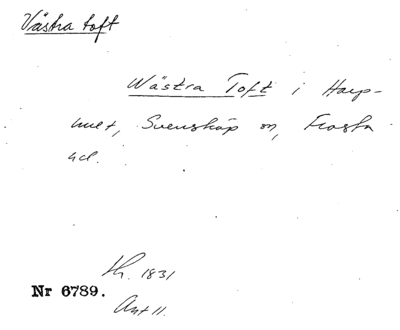 Västra toft
Wästra Toft i Harp-
hult, Svensköp sn, Frosta
hd.
th. 1831
Nr 6789.
Ant 11.